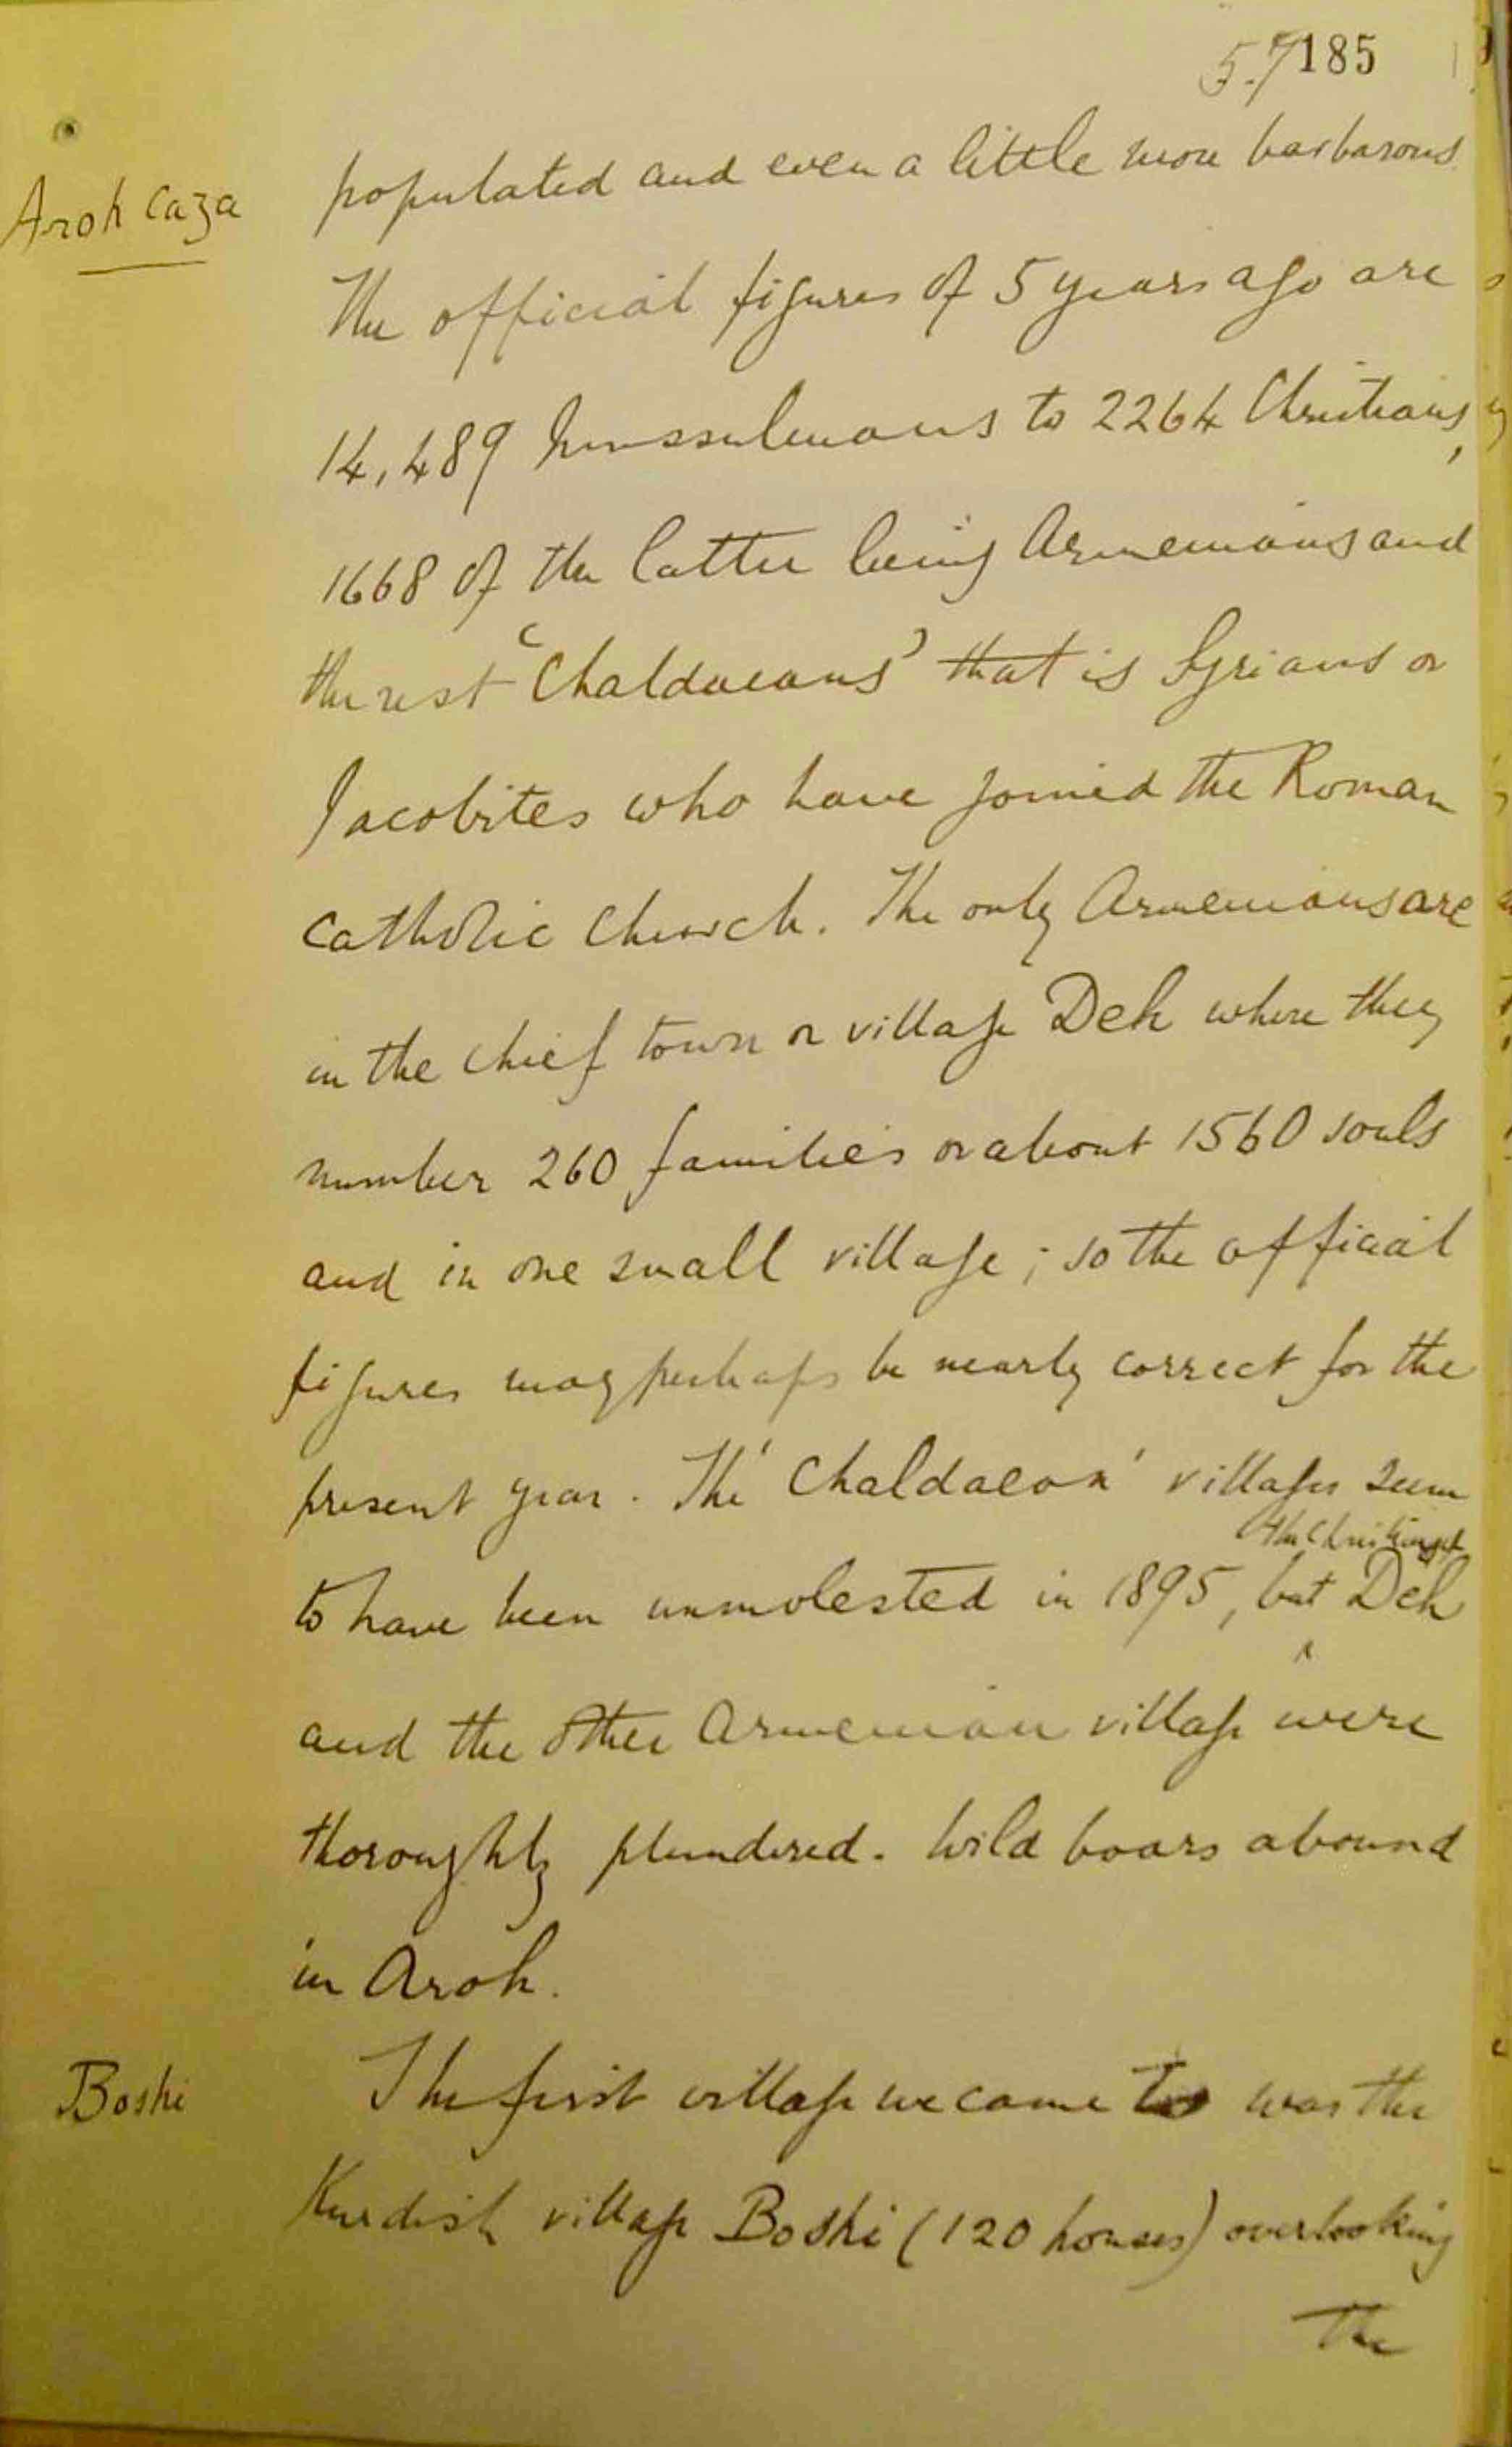 57 185
Aroh Caza
populated and even a little more barbarous
The official figures of 5 years ago are
14,489 Mussulmans to 2264 Christians,
1668 of the latter being Armenians and
the rest 'Chaldaeans' that is Syrians or
Jacobites who have joined the Roman
Catholic Church. The only Armenians are
in the chief town or village Deh where they
number 260 families or about 1560 souls
and in one small village; so the official
figures may perhaps be nearly correct for the
present year. The 'Chaldaean' villages seem
the Christians of
to have been unmolested in 1895, but Deh
and the other Armenian village were
thoroughly plundered. Wild boars abound
in Aroh.
Boshi
The first village we came to was the
Kurdish village Boshi (120 houses) overlooking
The